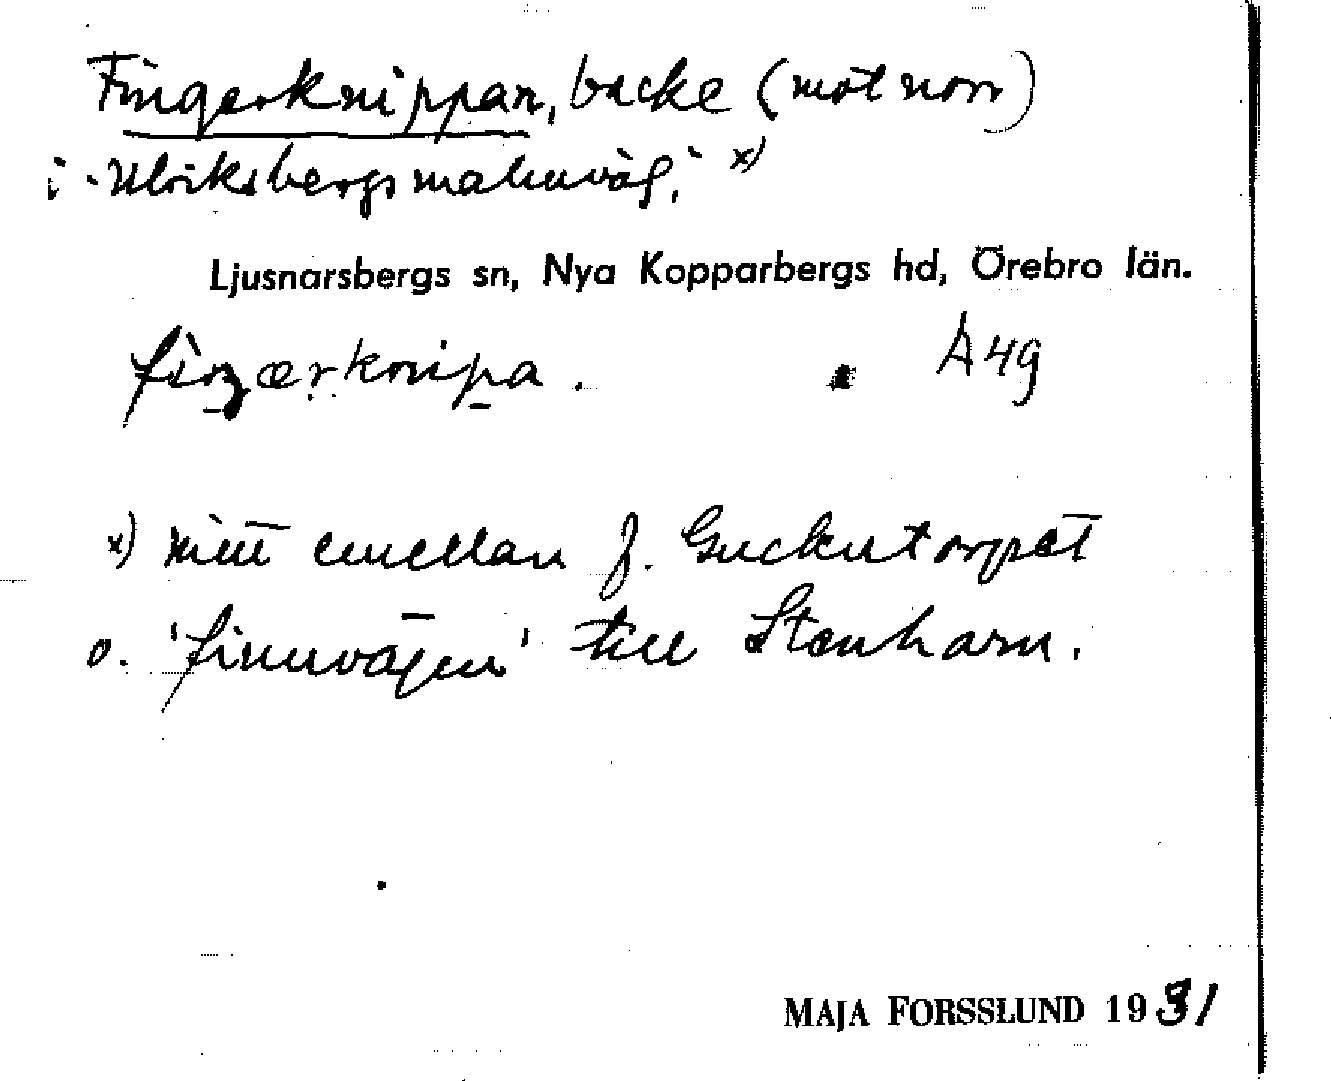 Fingerknippan, backe (mot norr)
i "Ulriksbergsmalmväg," x)
Ljusnarsbergs sn, Nya Kopparbergs hd, Örebro län.
A 49
x) mitt emellan f. Guckutorpet
o. 'finnvägen' till Stenharn.
MAJA FORSSLUND 1931